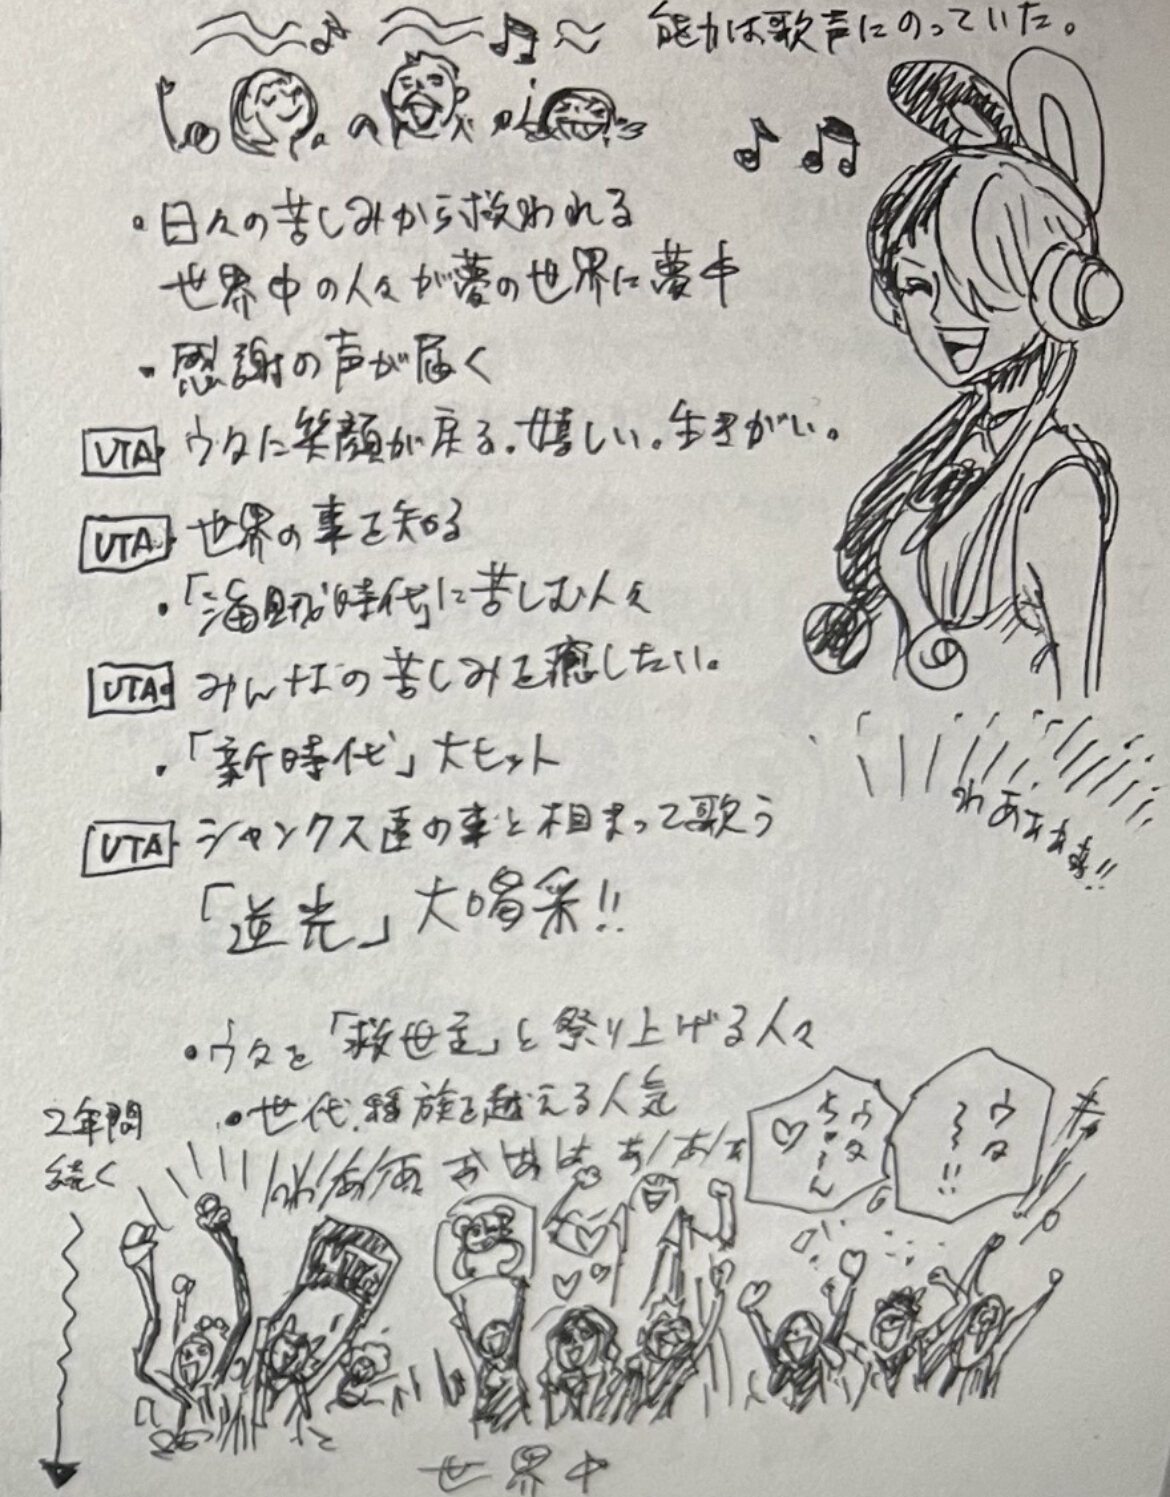 能力は歌声にのっていた。
・日々の苦しみから救われる
世界中の人々が夢の世界に夢中
・感謝の声が届く
UTA ウタに笑顔が戻る。嬉しい。生きがい。
UTA 世界の事を知る
・「海賊時代」に苦しむ人々
UTA みんなの苦しみを癒したい。
・「新時代」大ヒット
わあぁぁぁ!!
UTA シャンクス達の事と相まって歌う
「逆光」大喝采!!
・ウタを「救世主」と祭り上げる人々
・世代、種族を越える人気
2年間
続く
ウタ
ちゃーん
♡
ウタ
〜〜!!
世界中